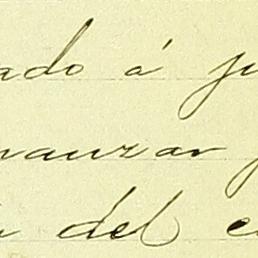 ado á ju
nauzar
del e